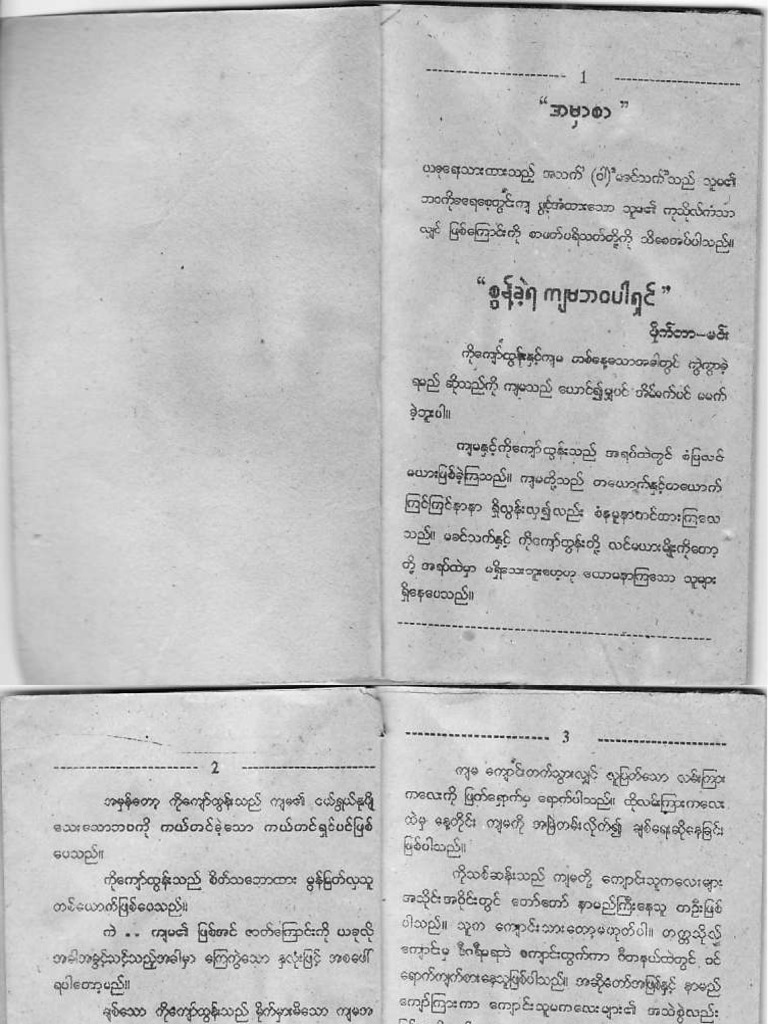 1
“အမှာစာ”
ယခုရေးသားထားသည့် အသက် (ဝါ) “မခင်သက်”သည် သူမ၏
ဘဝကိုခရေစေ့တွင်းကျ ဖွင့်အံထားသော သူမ၏ ကုသိုလ်ကံသာ
လျှင် ဖြစ်ကြောင်းကို စာဖတ်ပရိသတ်တို့ကို သိစေအပ်ပါသည်။
“စွန့်ခဲ့ရ ကျမဘဝပါရှင်”
ဖိုက်တာ-မင်း
ကိုကျော်ထွန်းနှင့်ကျမ တစ်နေ့သောအခါတွင် ကွဲကွာခဲ့
ရမည် ဆိုသည်ကို ကျမသည် ယောင်၍မျှပင် အိမ်မက်ပင် မမက်
ခဲ့ဘူးပါ။
ကျမနှင့်ကိုကျော်ထွန်းသည် အရပ်ထဲတွင် စံပြလင်
မယားဖြစ်ခဲ့ကြသည်။ ကျမတို့သည် တယောက်နှင့်တယောက်
ကြင်ကြင်နာနာ ရှိလွန်းလှ၍လည်း စံနမူနာတင်ထားကြလေ
သည်။ မခင်သက်နှင့် ကိုကျော်ထွန်းတို့ လင်မယားမျိုးကိုတော့
တို့ အရပ်ထဲမှာ မရှိသေးဘူးဟေ့ဟု ယောမနာကြသော သူများ
ရှိနေပေသည်။
2
အမှန်တော့ ကိုကျော်ထွန်းသည် ကျမ၏ ငယ်ရွယ်နုပျို
သေးသောဘဝကို ကယ်တင်ခဲ့သော ကယ်တင်ရှင်ပင်ဖြစ်
ပေသည်။
ကိုကျော်ထွန်းသည် စိတ်သဘောထား မွန်မြတ်လှသူ
တစ်ယောက်ဖြစ်ပေသည်။
ကဲ .. ကျမ၏ ဖြစ်အင် ဇာတ်ကြောင်းကို ယခုလို
အခါအခွင့်သင့်သည့်အခါမှာ ကြေကွဲသော နှလုံးဖြင့် အစဖေါ်
ရပါတော့မည်။
ချစ်သော ကိုကျော်ထွန်းသည် မိုက်မှားမိသော ကျမအ
3
ကျမ ကျောင်းတက်သွားလျှင် လူပြတ်သော လမ်းကြား
ကလေးကို ဖြတ်လျှောက်မှ ရောက်ပါသည်။ ထိုလမ်းကြားကလေး
ထဲမှ နေ့တိုင်း ကျမကို အမြဲတမ်းလိုက်၍ ချစ်ရေးဆိုနေခြင်း
ဖြစ်ပါသည်။
ကိုသစ်ဆန်းသည် ကျမတို့ ကျောင်းသူကလေးများ
အသိုင်းအဝိုင်းတွင် တော်တော် နာမည်ကြီးနေသူ တဦးဖြစ်
ပါသည်။ သူက ကျောင်းသားတော့မဟုတ်ပါ။ တက္ကသိုလ်
ကျောင်းမှ ဒီဂရီမရဘဲ စကျောင်းထွက်ကာ ဇီတနယ်ထဲတွင် ဝင်
ရောက်ကျက်စားနေသူဖြစ်ပါသည်။ အဆိုတော်အဖြစ်နှင့် နာမည်
ကျော်ကြားကာ ကျောင်းသူမကလေးများ၏ အသဲစွဲလည်း